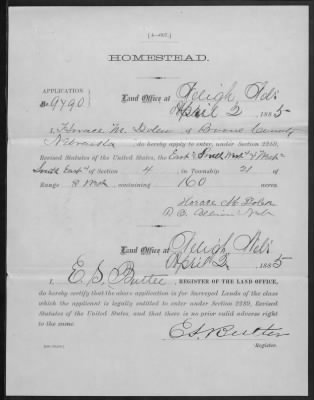 [4—007.]
HOMESTEAD.
APPLICATION
No. 9490
Land Office at Neligh Neb
April 2, 1885
I, Horace M. of Boone County
Nebraska, do hereby apply to enter, under Section 2289,
Revised Statutes of the United States, the East ½ South West ¼ & West ½
South East ¼ of Section 4, in Township 21, of
Range 8 West, containing 160 acres.
Horace M.
P.O. Albion Neb
Land Office at Neligh Neb.
April 2, 1885
I, E. S. Butler, REGISTER OF THE LAND OFFICE,
do hereby certify that the above application is for Surveyed Lands of the class
which the applicant is legally entitled to enter under Section 2289, Revised
Statutes of the United States, and that there is no prior valid adverse right
to the same.
E. S. Butler
Register.